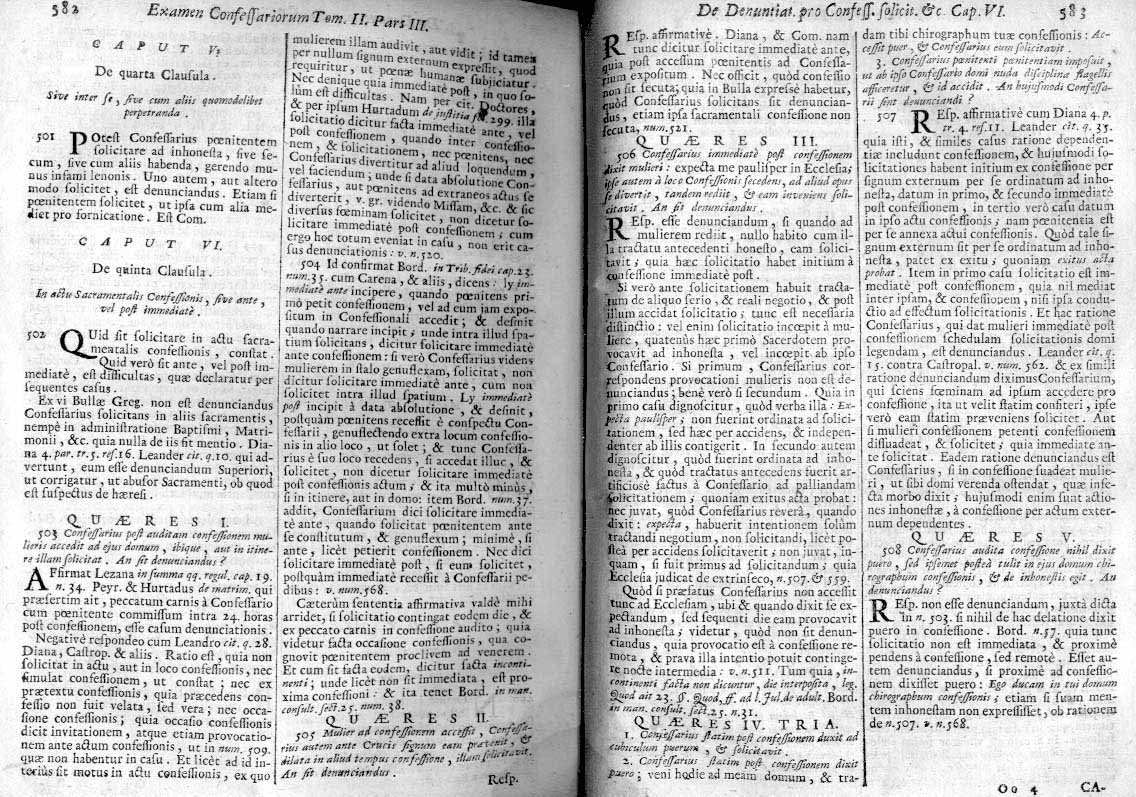 582 Examen Confessariorum Tom. II. Pars III.
CAPUT V.
De quarta Clausula.
Sive inter se, sive cum aliis quomodolibet
perpetranda.
501 POtest Confessarius pœnitentem
solicitare ad inhonesta, sive se-
cum, sive cum aliis habenda, gerendo mu-
nus infami lenonis. Uno autem, aut altero
modo solicitet, est denunciandus. Etiam si
pœnitentem solicitet, ut ipsa cum alia me-
diet pro fornicatione. Est Com.
CAPUT VI.
De quinta Clausula.
In actu Sacramentalis Confessionis, sive ante,
vel post immediatè.
502 QUid sit solicitare in actu sacra-
mentalis confessionis, constat.
Quid verò sit ante, vel post im-
mediatè, est difficultas, quæ declaratur per
sequentes casus.
Ex vi Bullæ Greg. non est denunciandus
Confessarius solicitans in aliis sacramentis,
nempè in administratione Baptismi, Matri-
monii, &c. quia nulla de iis fit mentio. Dia-
na 4. par. tr. 5. res. 16. Leander cit. q. 10. qui ad-
vertunt, eum esse denunciandum Superiori,
ut corrigatur, ut abusor Sacramenti, ob quod
est suspectus de hæresi.
QUÆRES I.
503 Confessarius post auditam confessionem mu-
lieris accedit ad ejus domum, ibique, aut in itine-
re illam solicitat. An sit denunciandus?
AFfirmat Lezana in summa qq. regul. cap. 19.
n. 34. Peyr. & Hurtadus de matrim. qui
præsertim ait, peccatum carnis à Confessario
cum pœnitente commissum intra 24. horas
post confessionem, esse casum denunciationis.
Negativè respondeo cum Leandro cit. q. 28.
Diana, Castrop. & aliis. Ratio est, quia non
solicitat in actu, aut in loco confessionis, nec
simulat confessionem, ut constat; nec ex
prætextu confessionis, quia præcedens con-
fessio non fuit velata, sed vera; nec occa-
sione confessionis; quia occasio confessionis
dicit invitationem, atque etiam provocatio-
nem ante actum confessionis, ut in num. 509.
quæ non habentur in casu. Et licèt ad id in-
teriùs sit motus in actu confessionis, ex quo
mulierem illam audivit, aut vidit; id tamen
per nullum signum externum expressit, quod
requiritur, ut pœnæ humanæ subjiciatur.
Nec denique quia immediatè post, in quo so-
lùm est difficultas. Nam per cit. Doctores,
& per ipsum Hurtadum de justitia 299. illa
solicitatio dicitur facta immediatè ante, vel
post confessionem, quando inter confessio-
nem, & solicitationem, nec pœnitens, nec
Confessarius divertitur ad aliud loquendum,
vel faciendum; unde si data absolutione Con-
fessarius, aut pœnitens ad extraneos actus se
diverterit, v. gr. videndo Missam, &c. & sic
diversus fœminam solicitet, non dicetur so-
licitare immediatè post confessionem; cum
ergo hoc totum eveniat in casu, non erit ca-
sus denunciationis: v. n. 520.
504 Id confirmat Bord. in Trib. fidei cap. 23.
num. 35. cum Carena, & aliis, dicens: ly im-
mediatè ante incipere, quando pœnitens pri-
mò petit confessionem, vel ad eum jam expo-
situm in Confessionali accedit; & desinit
quando narrare incipit; unde intra illud spa-
tium solicitans, dicitur solicitare immediatè
ante confessionem: si verò Confessarius videns
mulierem in stalo genuflexam, solicitat, non
dicitur solicitare immediatè ante, cum non
solicitet intra illud spatium. Ly immediatè
post incipit à data absolutione, & desinit,
postquàm pœnitens recessit è conspectu Con-
fessarii, genuflectendo extra locum confessio-
nis in alio loco, ut solet; & tunc Confessa-
rius è suo loco recedens, si accedat illuc, &
solicitet, non dicetur solicitare immediatè
post confessionis actum; & ita multò minùs,
si in itinere, aut in domo: item Bord. num. 37.
addit, Confessarium dici solicitare immedia-
tè ante, quando solicitat pœnitentem ante
se constitutum, & genuflexum; minimè, si
ante, licèt petierit confessionem. Nec dici
solicitare immediatè post, si eum solicitet,
postquàm immediatè recessit à Confessarii pe-
dibus: v. num. 568.
Cæterùm sententia affirmativa valdè mihi
arridet, si solicitatio contingat eodem die, &
ex peccato carnis in confessione audito; quia
videtur facta occasione confessionis, qua co-
gnovit pœnitentem proclivem ad venerem.
Et cum sit facta eodem, dicitur facta inconti-
nenti; unde licèt non sit immediata, est pro-
xima confessioni: & ita tenet Bord. in man.
consult. sect. 25. num. 38.
QUÆRES II.
505 Mulier ad confessionem accessit, Confessa-
rius autem ante Crucis signum eam prævenit, &
dilata in aliud tempus confessione, illam solicitavit.
An sit denunciandus.
Resp.
De Denuntiat. pro Confess. solicit. &c. Cap. VI. 583
REsp. affirmativè. Diana, & Com. nam
tunc dicitur solicitare immediatè ante,
quia post accessum pœnitentis ad Confessa-
rium expositum. Nec officit, quòd confessio
non sit secuta; quia in Bulla expressè habetur,
quòd Confessarius solicitans sit denuncian-
dus, etiam ipsa sacramentali confessione non
secuta, num. 521.
QUÆRES III.
506 Confessarius immediatè post confessionem
dixit mulieri: expecta me paulisper in Ecclesia;
ipse autem à loco Confessionis secedens, ad aliud opus
se divertit, tandem rediit, & eam inveniens soli-
citavit. An sit denunciandus.
REsp. esse denunciandum, si quando ad
mulierem rediit, nullo habito cum il-
la tractatu antecedenti honesto, eam solici-
tavit; quia hæc solicitatio habet initium à
confessione immediatè post.
Si verò ante solicitationem habuit tracta-
tum de aliquo serio, & reali negotio, & post
illum accidat solicitatio; tunc est necessaria
distinctio: vel enim solicitatio incœpit à mu-
liere, quatenùs hæc primò Sacerdotem pro-
vocavit ad inhonesta, vel incœpit ab ipso
Confessario. Si primum, Confessarius cor-
respondens provocationi mulieris non est de-
nunciandus; benè verò si secundum. Quia in
primo casu dignoscitur, quòd verba illa: Ex-
pecta paulisper; non fuerint ordinata ad solici-
tationem, sed hæc per accidens, & indepen-
denter ab illis contigerit. In secundo autem
dignoscitur, quòd fuerint ordinata ad inho-
nesta, & quòd tractatus antecedens fuerit ar-
tificiosè factus à Confessario ad palliandam
solicitationem; quoniam exitus acta probat:
nec juvat, quòd Confessarius reverà, quando
dixit: expecta, habuerit intentionem solùm
tractandi negotium, non solicitandi, licèt po-
steà per accidens solicitaverit; non juvat, in-
quam, si fuit primus ad solicitandum; quia
Ecclesia judicat de extrinseco, n. 507. & 559.
Quòd si præfatus Confessarius non accessit
tunc ad Ecclesiam, ubi & quando dixit se ex-
pectandum, sed sequenti die eam provocavit
ad inhonesta; videtur, quòd non sit denun-
ciandus, quia provocatio est à confessione re-
mota, & prava illa intentio potuit continge-
re nocte intermedia: v. n. 511. Tum quia, in-
continenti facta non dicuntur, die interposita, leg.
Quod ait 23. §. Quod, ff. ad l. Jul. de adult. Bord.
in man. consult. sect. 25. n. 31.
QUÆRES IV. TRIA.
1. Confessarius statim post confessionem duxit ad
cubiculum puerum, & solicitavit.
2. Confessarius statim post confessionem dixit
puero; veni hodie ad meam domum, & tra-
dam tibi chirographum tuæ confessionis: Ac-
cessit puer, & Confessarius eum solicitavit.
3. Confessarius pœnitenti pœnitentiam imposuit,
ut ab ipso Confessario domi nuda disciplina flagellis
afficeretur, & id accidit. An hujusmodi Confessa-
rii sint denunciandi?
507 REsp. affirmativè cum Diana 4. p.
tr. 4. res. 11. Leander cit. q. 35.
quia isti, & similes casus ratione dependen-
tiæ includunt confessionem, & hujusmodi so-
licitationes habent initium ex confessione per
signum externum per se ordinatum ad inho-
nesta, datum in primo, & secundo immediatè
post confessionem, in tertio verò casu datum
in ipso actu confessionis; nam pœnitentia est
per se annexa actui confessionis. Quòd tale si-
gnum externum sit per se ordinatum ad inho-
nesta, patet ex exitu; quoniam exitus acta
probat. Item in primo casu solicitatio est im-
mediatè post confessionem, quia nil mediat
inter ipsam, & confessionem, nisi ipsa condu-
ctio ad effectum solicitationis. Et hac ratione
Confessarius, qui dat mulieri immediatè post
confessionem schedulam solicitationis domi
legendam, est denunciandus. Leander cit. q.
15. contra Castropal. v. num. 562. & ex simili
ratione denunciandum diximus Confessarium,
qui sciens fœminam ad ipsum accedere pro
confessione, ita ut velit statim confiteri, ipse
verò eam statim præveniens solicitet. Aut
si mulieri confessionem petenti confessionem
dissuadeat, & solicitet; quia immediatè an-
te solicitat. Eadem ratione denunciandus est
Confessarius, si in confessione suadeat mulie-
ri, ut sibi domi verenda ostendat, quæ infe-
cta morbo dixit; hujusmodi enim sunt actio-
nes inhonestæ, à confessione per actum exter-
num dependentes.
QUÆRES V.
508 Confessarius audita confessione nihil dixit
puero, sed ipsemet posteà tulit in ejus domum chi-
rographum confessionis, & de inhonestis egit. An
denunciandus?
REsp. non esse denunciandum, juxtà dicta
in n. 503. si nihil de hac delatione dixit
puero in confessione. Bord. n. 57. quia tunc
solicitatio non est immediatè, & proximè
pendens à confessione, sed remotè. Esset au-
tem denunciandus, si proximè ad confessio-
nem dixisset puero: Ego ducam in tui domum
chirographum confessionis; etiam si suam men-
tem inhonestam non expressisset, ob rationem
de n. 507. v. n. 568.
Oo 4 CA-